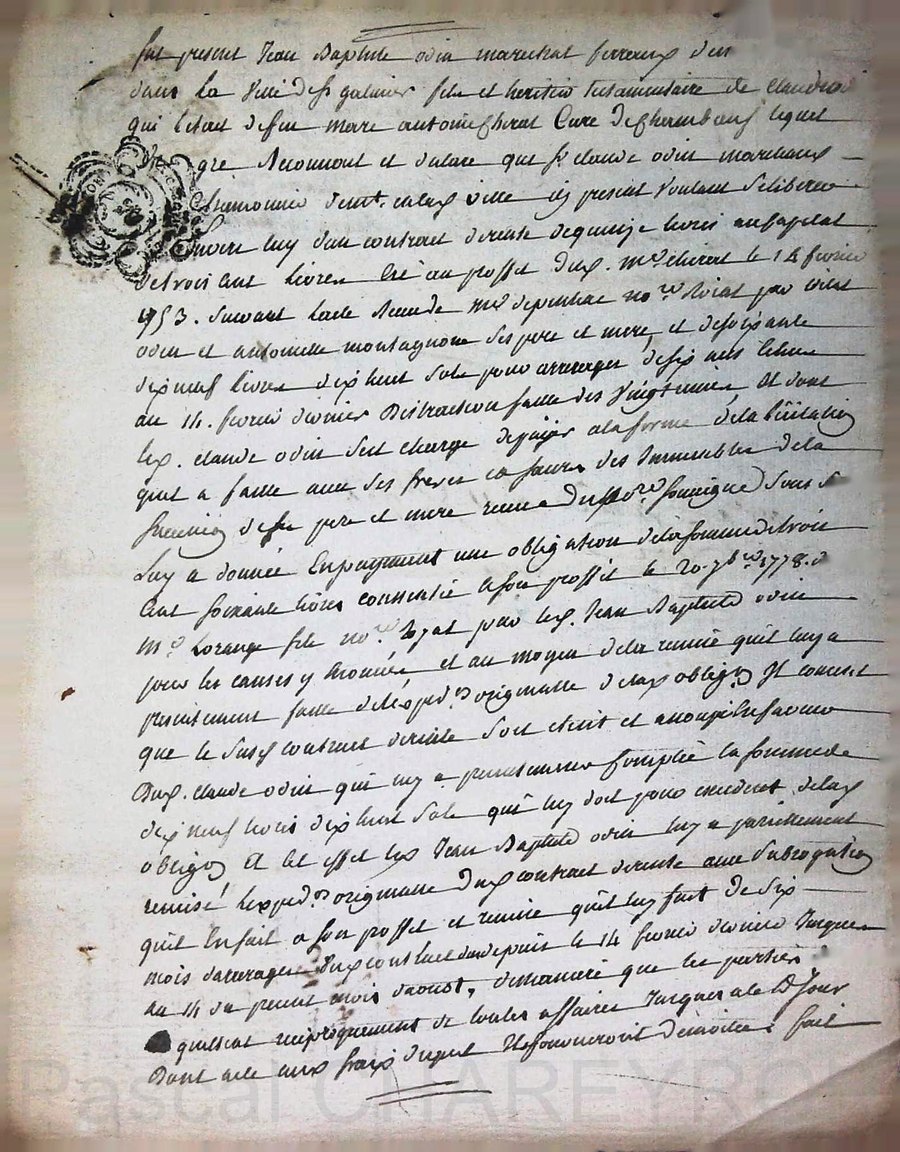 fut present Jean Baptiste odin marechal ferrand dem
dans la Ville de st galmier fils et heritier testamentaire de claudine
qui l'etait de feu mere antoine cherat Curé de chambeuf lequel
gré Reconnoit et declare que sr claude odin marchand
chamoinier demt. en lad ville icy present voulant se liberer
Envers luy d'un contract de rente de quinze livres au capital
de trois cent livres Créé au proffit dud. me cherat le 14 fevrier
1753. suivant l'acte Receu de me depinhac nore Roial par
odin et antoinette montagnon ses pere et mere, et de soixante
dix neuf livres dix huit sols pour arrerages de six ans echus
au 14. fevrier dernier Distraction faitte des Vingtiemes Et dont
led. claude odin s'est chargé de payer a la forme de la licitation
quil a faitte avec ses freres et soeurs des Immeubles de la
succession de feu pere et mere receu du nore soussigné sous s
Luy a donnée En payement une obligation de la somme de trois
Cent soixante livres consentie a son proffit le 20. 7bre 1778. d
me Lorange fils nore Royal par led. Jean Baptiste odin
pour les causes y enoncées et au moyen de la remise quil luy a
presentement faitte de l'exped.on originalle de lad obligon Il consent
que le susd contract de rente soit eteint et en faveur
Dud. claude odin qui luy a presentement compté la somme de
dix neuf livres dix huit sols qu'il luy doit pour excedent de lad
obligon Et a cet effet led Jean Baptiste odin luy a pareillement
remisé l'exped.on originalle dud contract de rente avec subrogation
quil En fait a son proffit et remise quil luy fait de six
mois d'arrerages dud contract depuis le 14 fevrier dernier Jusques
au 14 du present mois d'aoust, de maniere que les parties
quittent reciproquement de toutes affaires Jusques a ce Jour
Dont acte aux frais dud fait
Pascal CHAREYRO